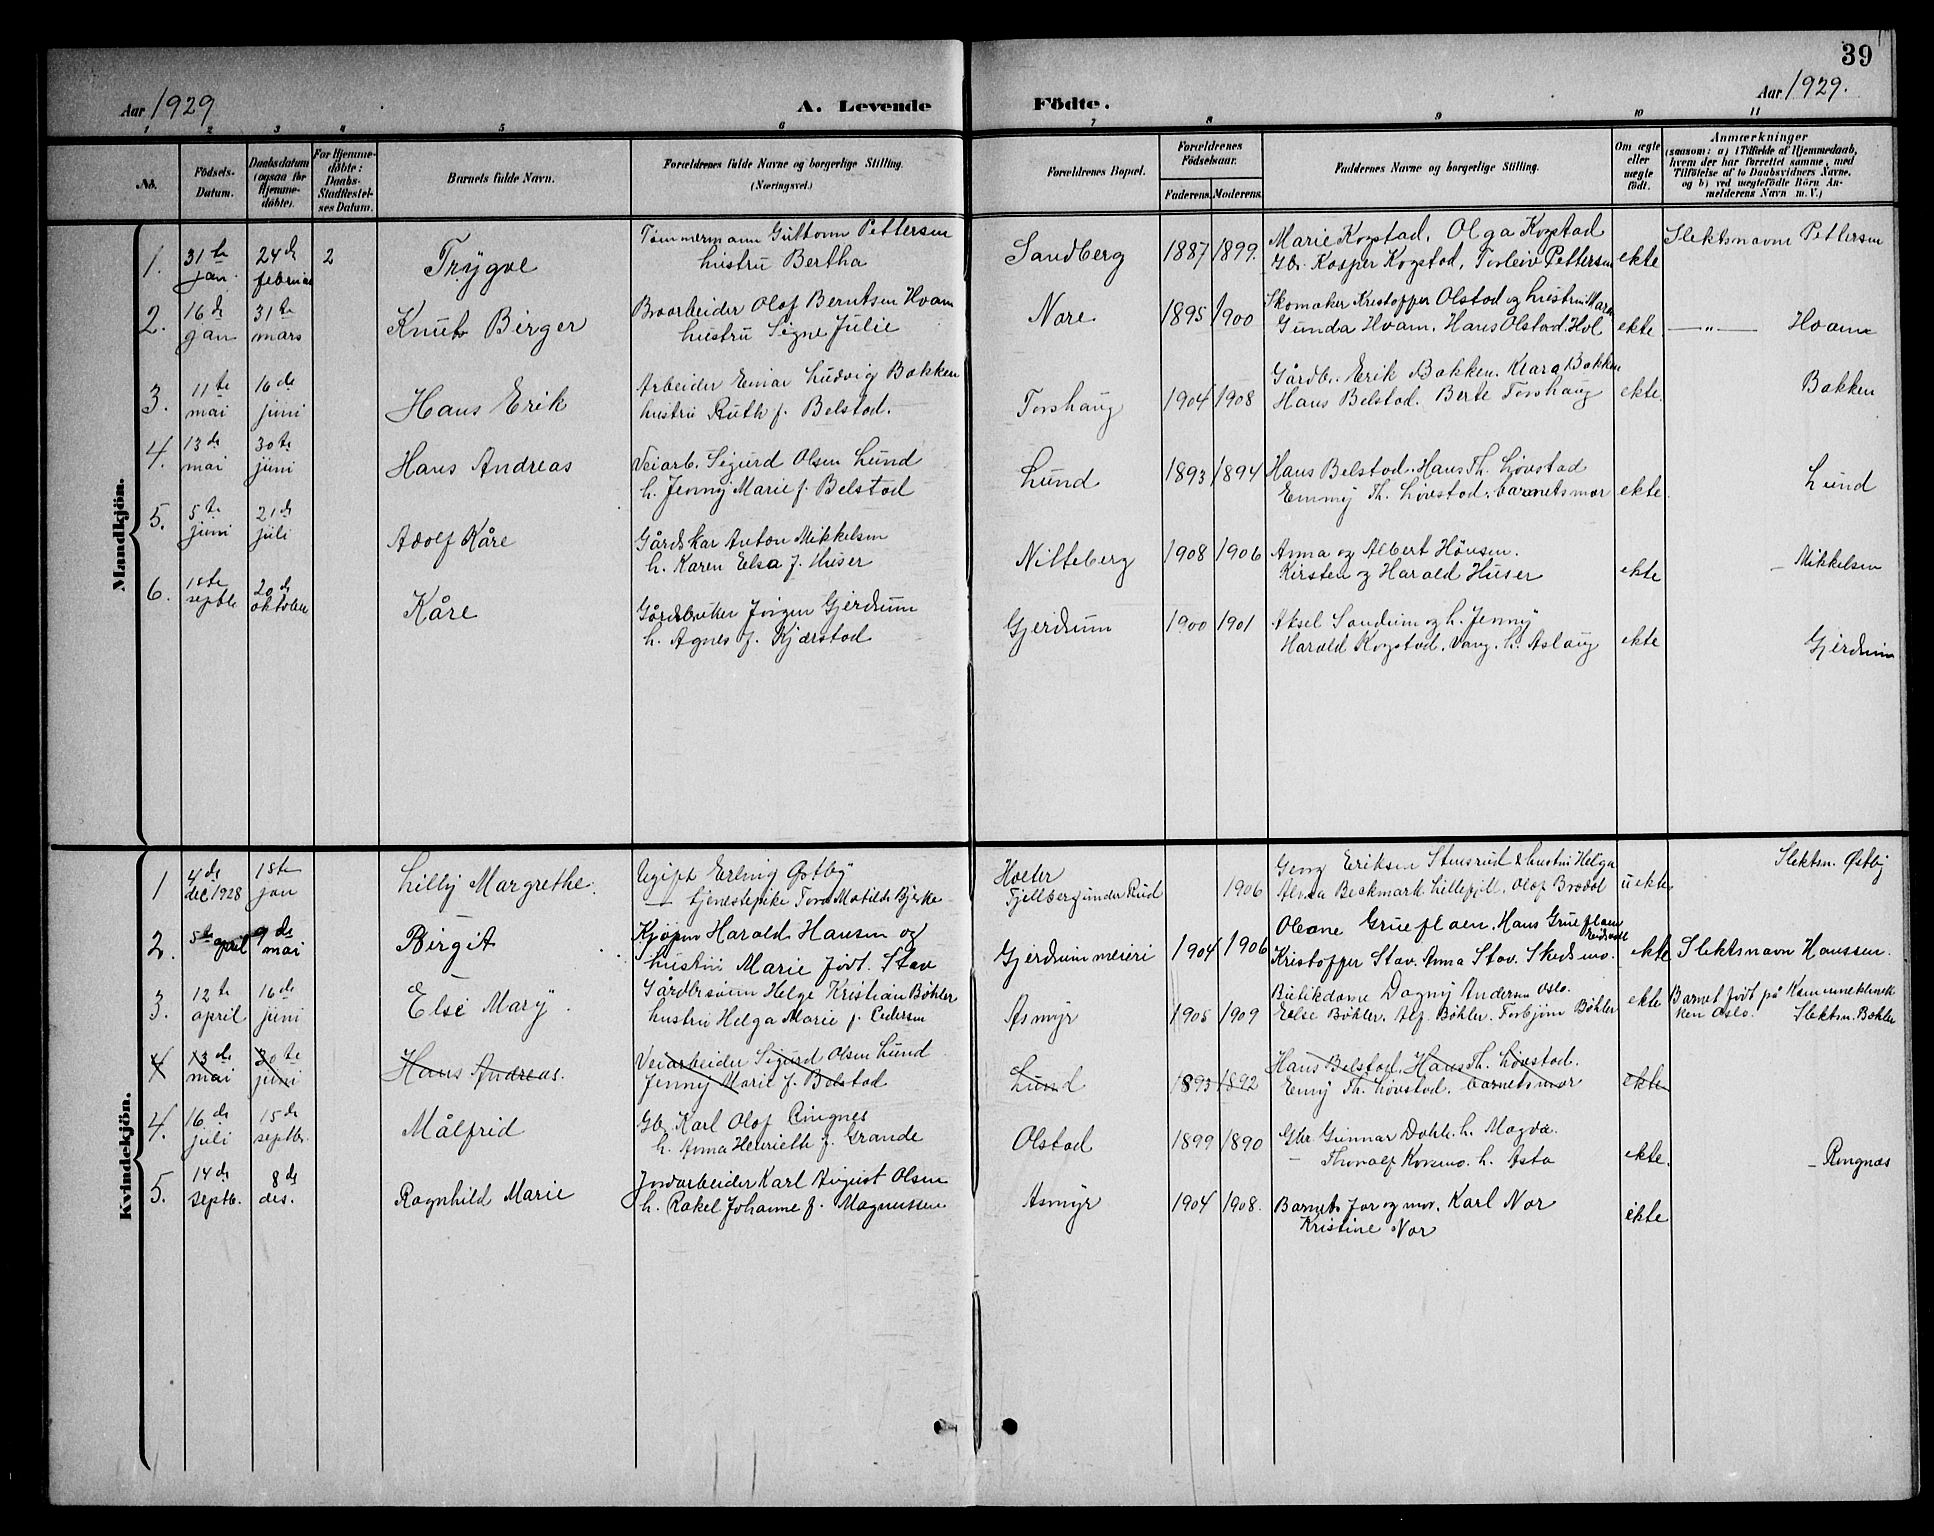 39
Aar 1929 A. Levende Födte. Aar 1929.
1 2 3 4 5 6 7 8 9 10 11
No.
Födsels-
Datum.
Daabsdatum
(ogsaa for
Hjemme-
döbte).
For Hjemme-
döbte:
Daabs-
Stadfestel-
ses Datum.
Barnets fulde Navn.
Forældrenes fulde Navne og borgerlige Stilling.
(Næringsvei.)
Forældrenes Bopæl.
Forældrenes
Födselsaar.
Faderens. Moderens.
Faddernes Navne og borgerlige Stilling.
Om ægte
eller
uægte
födt.
Anmærkninger
(saasom: a) i Tilfælde af Hjemmedaab,
hvem der har forrettet samme, med
Tilföielse af to Daabsvidners Navne,
og b) ved uægtefödte Börn An-
melderens Navn m. V.)
Mandkjön.
1. 31te jan. 24de februar 2 Trygve
Tømmermann Guttorm Pettersen
hustru Bertha
Sandberg 1887 1899.
Marie Kogstad, Olga Kogstad
Gbr. Kasper Kogstad, Torleiv Pettersen
ekte Slektsnavn Pettersen
2. 16de jan 31te mars Knut Birger
Broarbeider Olof Berntsen Hvam
hustru Signe Julie
Nore 1895 1900
Skomaker Kristoffer Olstad og hustru Marn
Gunda Hvam. Hans Olstad. Hol
ekte —"— Hvam
3. 11te mai 16de juni Hans Erik
Arbeider Einar Ludvig Bakken
hustru Ruth f. Belstad.
Torshaug 1904 1908
Gårdbr. Erik Bakken. Klara Bakken
Hans Belstad. Berte Torshaug
ekte. Bakken
4. 13de mai 30te juni Hans Andreas
Veiarb. Sigurd Olsen Lund
h. Jenny Marie f. Belstad
Lund 1893 1894
Hans Belstad. Hans Th. Løvstad
Emmy Th. Løvstad. barnets mor
ekte. Lund
5. 5te juni 21de juli Adolf Kåre
Gårdskar Anton Mikkelsen
h. Karen Elsa f. Huser
Nitteberg 1908 1906
Anna og Albert Hønsen.
Kirsten og Harald Huser
ekte – Mikkelsen
6. 1ste septbr 20de oktober Kåre
Gårdbruker Jørgen Gjerdrum
h. Agnes f. Kjærstad
Gjerdrum 1900 1901
Aksel Sandum og h. Jenny
Harald Kogstad. Vang. h. Aslaug
ekte Gjerdrum
Kvindekjön.
1 4de dec 1928 1ste jan Lilly Margrethe.
Ugift Erling Østby
— tjenestepike Tora Matilde Bjerke
Holter
Fjellberg under Rud 1906
Georg Eriksen Stensrud & hustru Helga
Alma Beckmark. Lillefjell. Olof Brodal
uekte Slektsn. Østby
2. 5te april 9de mai Birgit
Kjøpm Harald Hansen og
hustru Marie født Stav
Gjerdrum meieri 1904 1906
Oleane Grueflaen. Hans Grueflaen Eidsvoll
Kristoffer Stav. Anna Stav. Skedsmo.
ekte Slektsnavn Hanssen.
3. 12te april 16de juni Else Mary
Gårdbrsønn Helge Kristian Bøhler
hustru Helga Marie f. Pedersen
Asmyr 1905 1909
Butikdame Dagny Andersen Oslo.
Else Bøhler. Alf Bøhler. Torbjørn Bøhler
ekte Barnet født på Kvinneklinik
ken Oslo. Slektsn. Bøhler
4 13de mai 30te juni Hans Andreas.
Veiarbeider Sigurd Olsen Lund
Jenny Marie f. Belstad
Lund 1893 1892
Hans Belstad. Hans Th. Løvstad.
Emy Th. Løvstad. barnets mor
ekte
4. 16de juli 15de septbr. Målfrid
Gbr. Karl Olof Ringnes
h. Anna Henriette f. Grande
Olstad 1899 1890
Gbr. Gunnar Dahl. h. Magda.
— Thoralf Korsmo. h. Asta
ekte. – Ringnæs
5. 14de septb. 8de des. Ragnhild Marie
Jordarbeider Karl August Olsen
h. Rakel Johanne f. Magnussen
Asmyr 1904 1908.
Barnets far og mor. Karl Nor
Kristine Nor
ekte